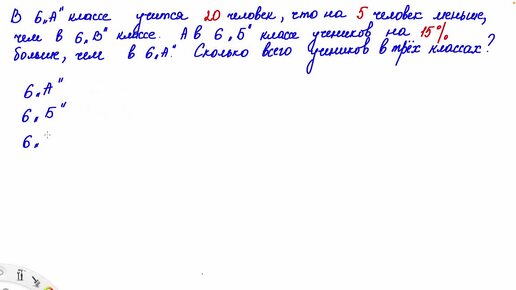 В 6„А" классе учится 20 человек, что на 5 человек меньше,
чем в 6„В" классе. А в 6„Б" классе учеников на 15%
больше, чем в 6„А". Сколько всего учеников в трёх классах?
6„А"
6„Б"
6„